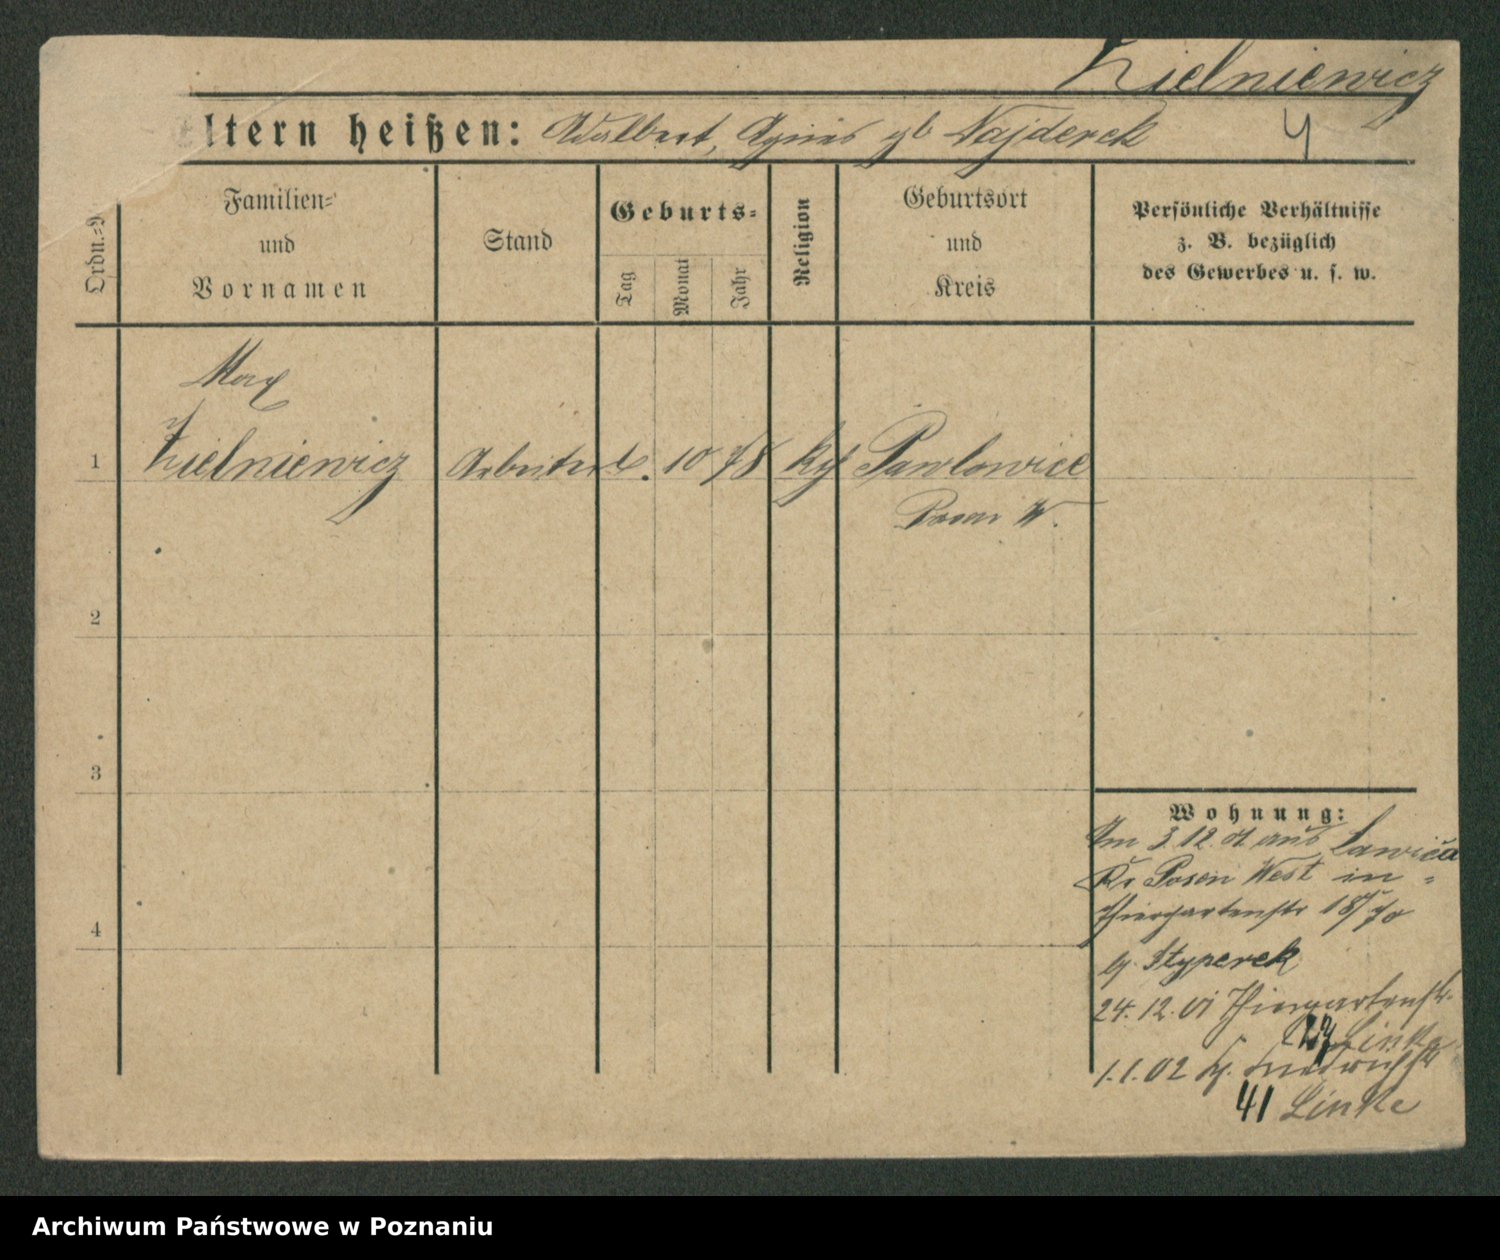 Zielniewicz
Eltern heißen: Adalbert, Agnes gb Najderek
4
Ordn.-N
Familien-
und
Vornamen
Stand
Geburts-
Tag
Monat
Jahr
Religion
Geburtsort
und
Kreis
Persönliche Verhältnisse
z. B. bezüglich
des Gewerbes u. s. w.
Max
1 Zielniewicz Arbeiter 10 78 kth Pawlowice
Posen W.
2
3
4
Wohnung:
Am 3.12.01 aus Lawica
Kr Posen West in
Thiergartenstr 18/70
b. Styperek
24.12.01 Thiergartenstr.
Linke
1.1.02
41 Linke
Archiwum Państwowe w Poznaniu